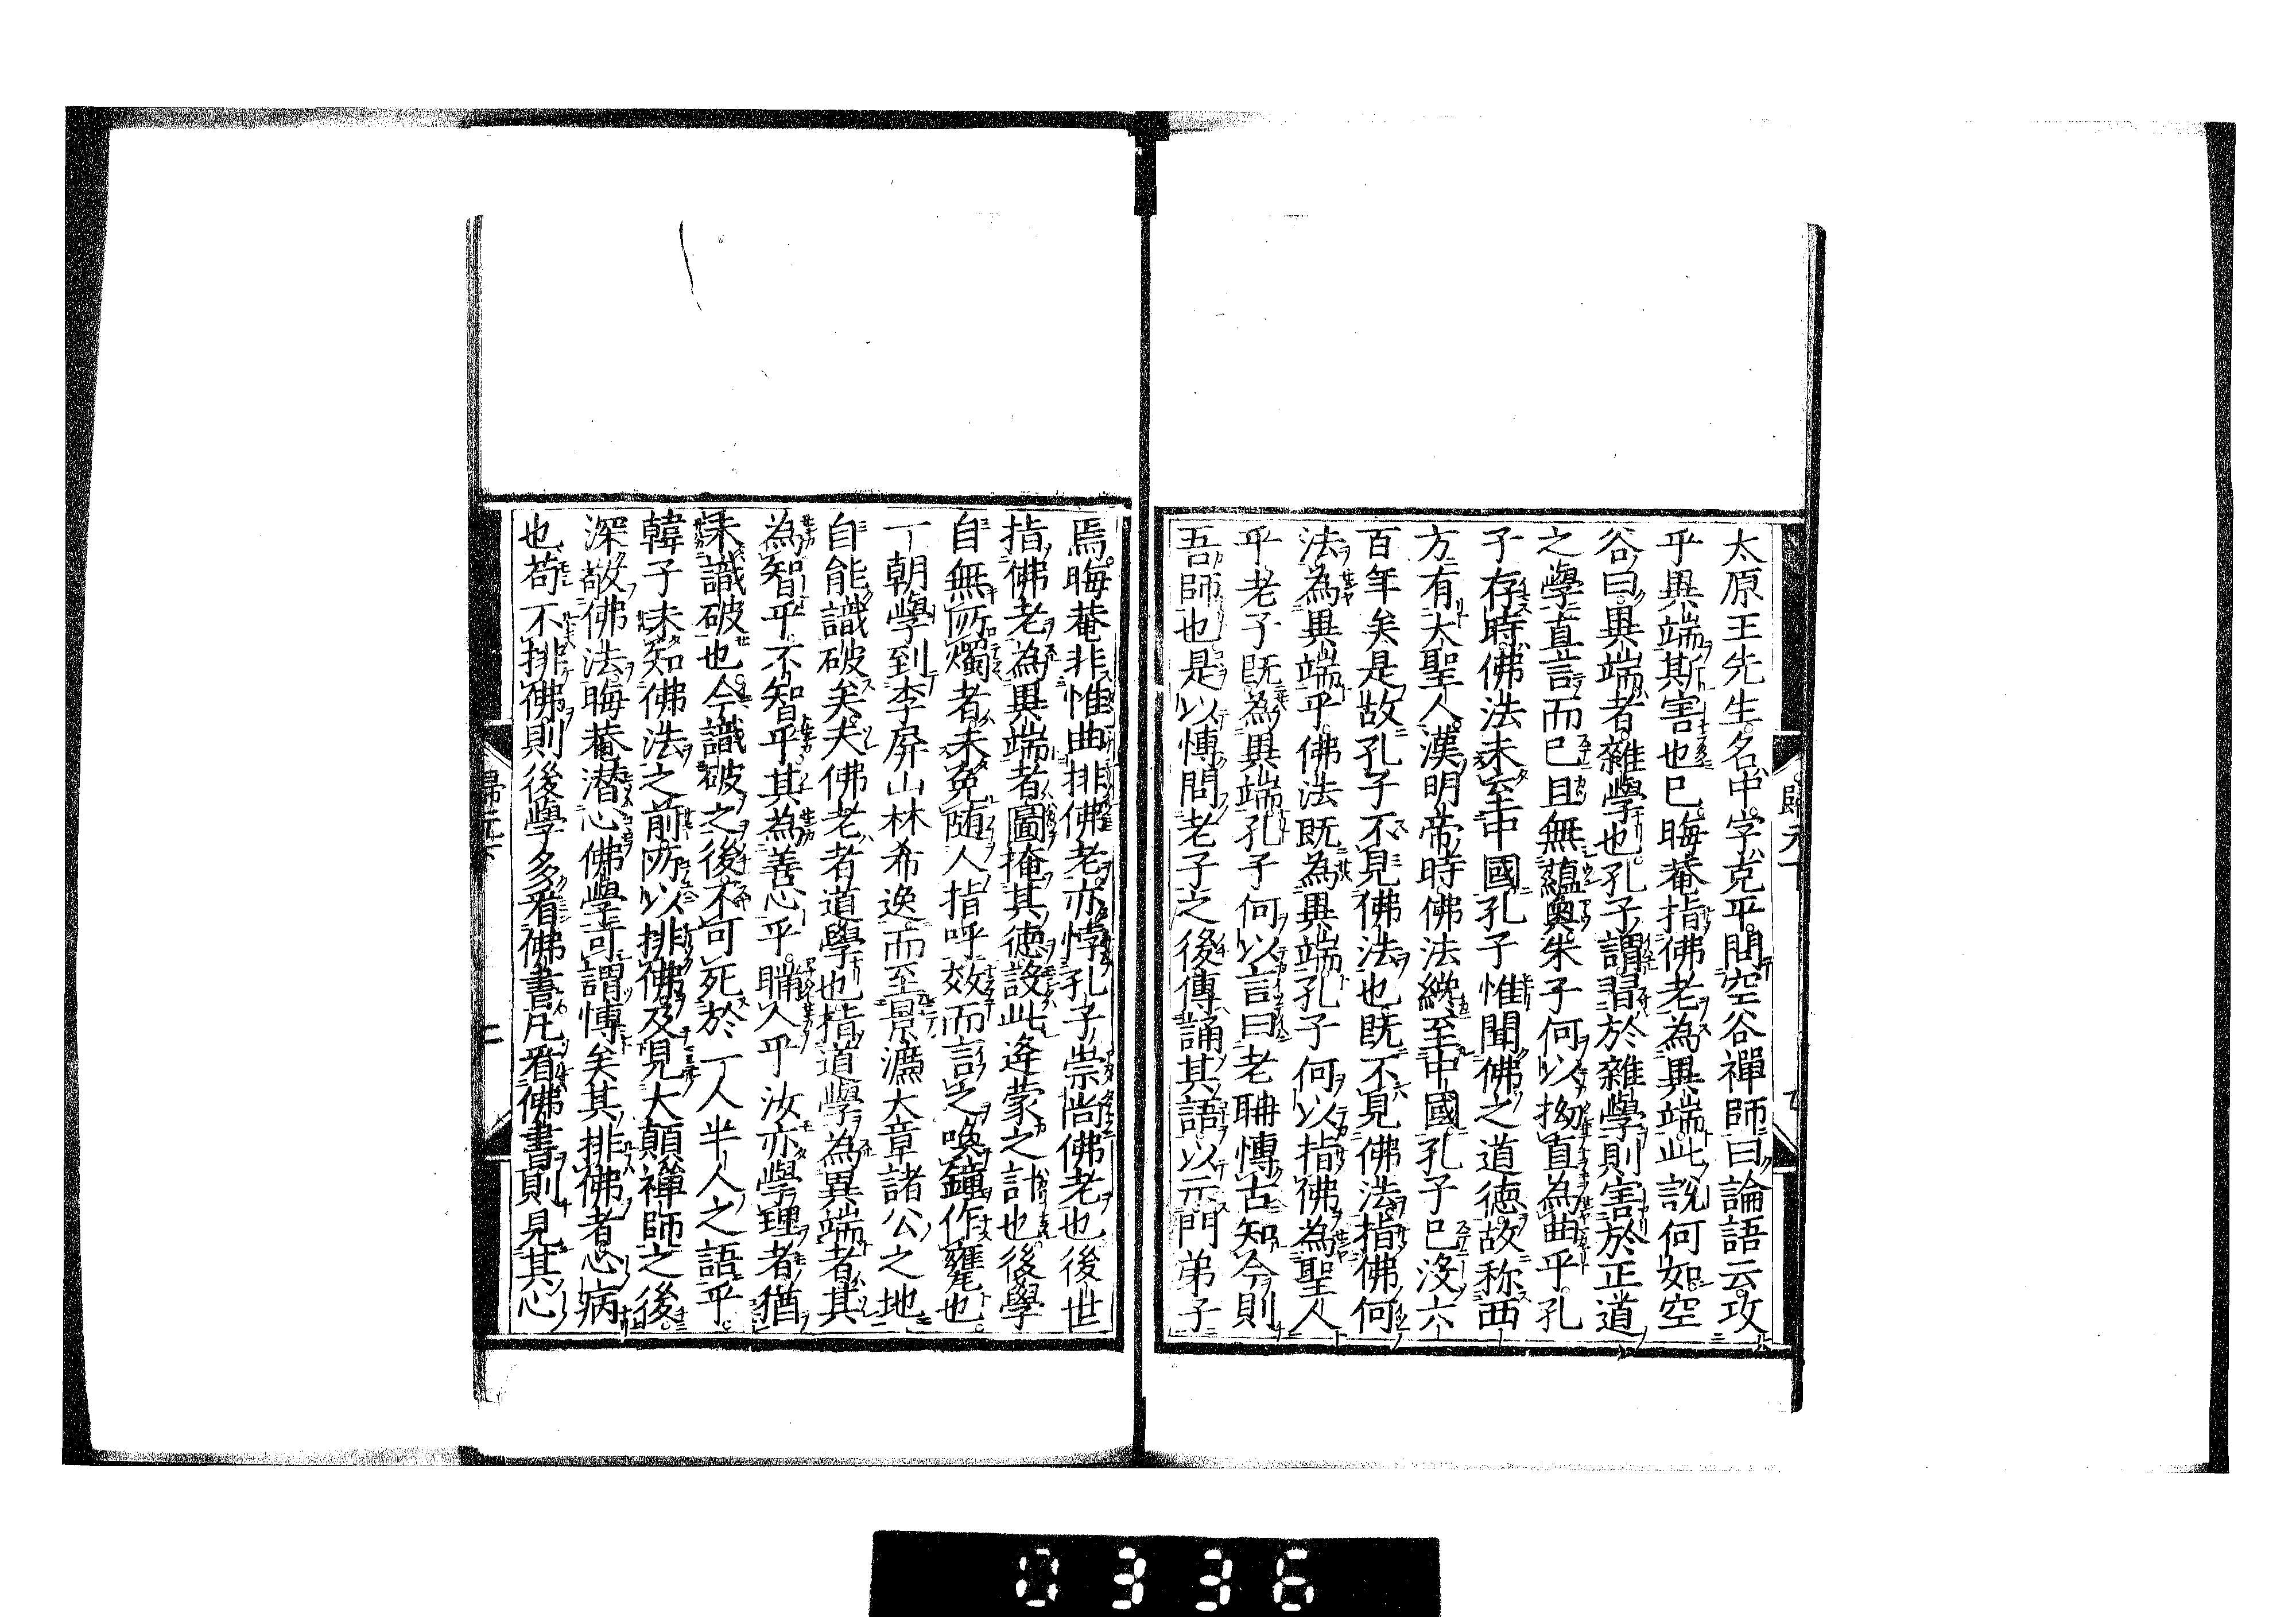 太原王先生名中字克平問空谷禪師曰論語云攻
乎異端斯害也已晦菴指佛老為異端此說何如空
谷曰異端者雜學也孔子謂習於雜學則害於正道
之學直言而已且無蘊奥朱子何以拗直為曲乎孔
子存時佛法未至中國孔子惟聞佛之道徳故称西
方有大聖人漢明帝時佛法纔至中國孔子已没六
百年矣是故孔子不見佛法也既不見佛法指佛何
法為異端乎佛法既為異端孔子何以指佛為聖人
乎老子既為異端孔子何以言曰老聃愽古知今則
吾師也是以愽問老子之後傳誦其語以示門弟子
焉晦菴非惟曲排佛老亦悖孔子崇尚佛老也後世
指佛老為異端者啚掩其徳設此逄蒙之計也後學
自無所燭者未免随人指呼效而言之喚鐘作甕也
丁朝學到李屏山林希逸而至景濂大章諸公之地
自能識破矣夫佛老者道學也指道學為異端者其
為智乎不智乎其為善心乎瞞人乎汝亦學理者猶
未識破也今識破之後不可死於一人半人之語乎
韓子未知佛法之前所以排佛及見大顛禪師之後
深敬佛法晦菴潜心佛學可謂愽矣其排佛者心病
也苟不排佛則後學多看佛書凡看佛書則見其心
歸元下
二
0336